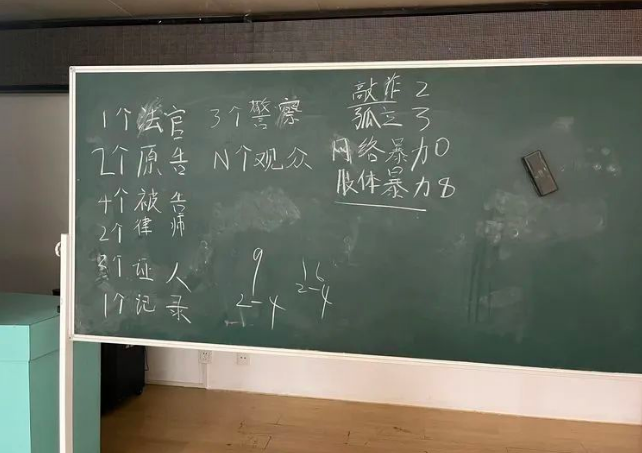 1个法官 3个警察
2个原告 N个观众
4个被告
2个律师
3个证人
1个记录
敲诈2
孤立3
网络暴力0
肢体暴力8
9
2-4
16
2-4